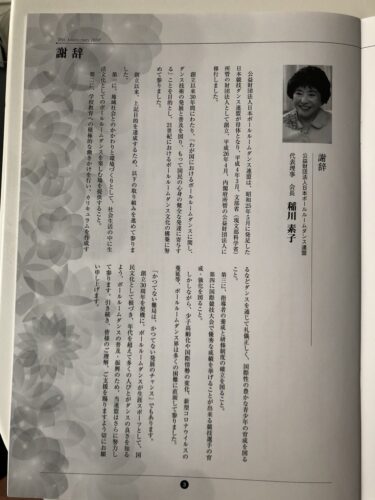 30th Anniversary JBDF
謝辞
謝辞
公益財団法人日本ボールルームダンス連盟
代表理事 会長 稲川 素子
公益財団法人日本ボールルームダンス連盟は、昭和25年5月に発足した
日本競技ダンス連盟が母体となり、平成4年3月、文部省(現文部科学省)
所管の財団法人として創立、平成26年4月、内閣府所管の公益財団法人に
移行しました。
創立以来30年間にわたり、「わが国におけるボールルームダンスに関し、
ダンス技術の発展と普及を図り、もって国民の心身の健全な発達に寄与す
る」ことを目的とし、21世紀におけるボールルームダンス文化の構築に努
めて参りました。
創立以来、上記目的を達成するため、以下の取り組みを進めて参りま
した。
第一に、地域社会とのかかわりと環境づくりとして、社会生活の中に生
活文化としてのボールルームダンスを楽しむ場を提供すること。
第二に、学校教育への積極的な働きかけを行い、カリキュラムを作成す
るなどダンスを通じて礼儀正しく、国際性の豊かな青少年の育成を図る
こと。
第三に、指導者の養成と研修制度の確立を図ること。
第四に国際競技大会で優秀な成績を挙げることが出来る競技選手の育
成・強化を図ること。
しかしながら、少子高齢化や国際情勢の変化、新型コロナウイルスの
蔓延等、ボールルームダンス界は多くの困難に直面して参りました。
「かつてない難局は、かつてない発展のチャンス」でもあります。
創立30周年を契機に、ボールルームダンスが生涯スポーツとして、国
民文化として根づき、年代を超えて多くの人びとがダンスの良さを知る
よう、ボールルームダンスの普及・振興のため、当連盟はさらに努力し
て参ります。引き続き、皆様のご理解、ご支援を賜りますよう切にお願
い申し上げます。
3